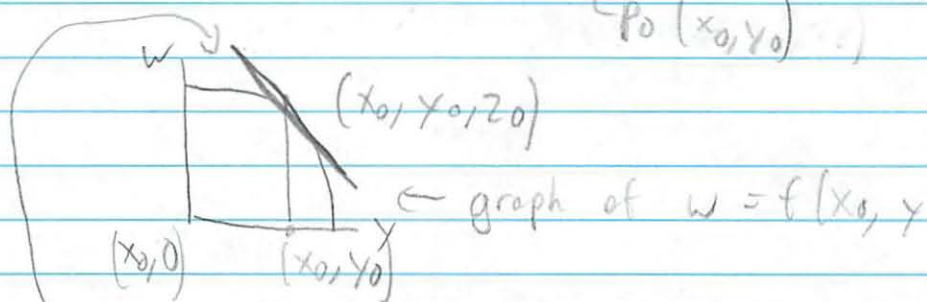 P0 (x0, y0)
w
(x0, y0, z0)
← graph of w = f(x0, y
y
(x0, 0) (x0, y0)